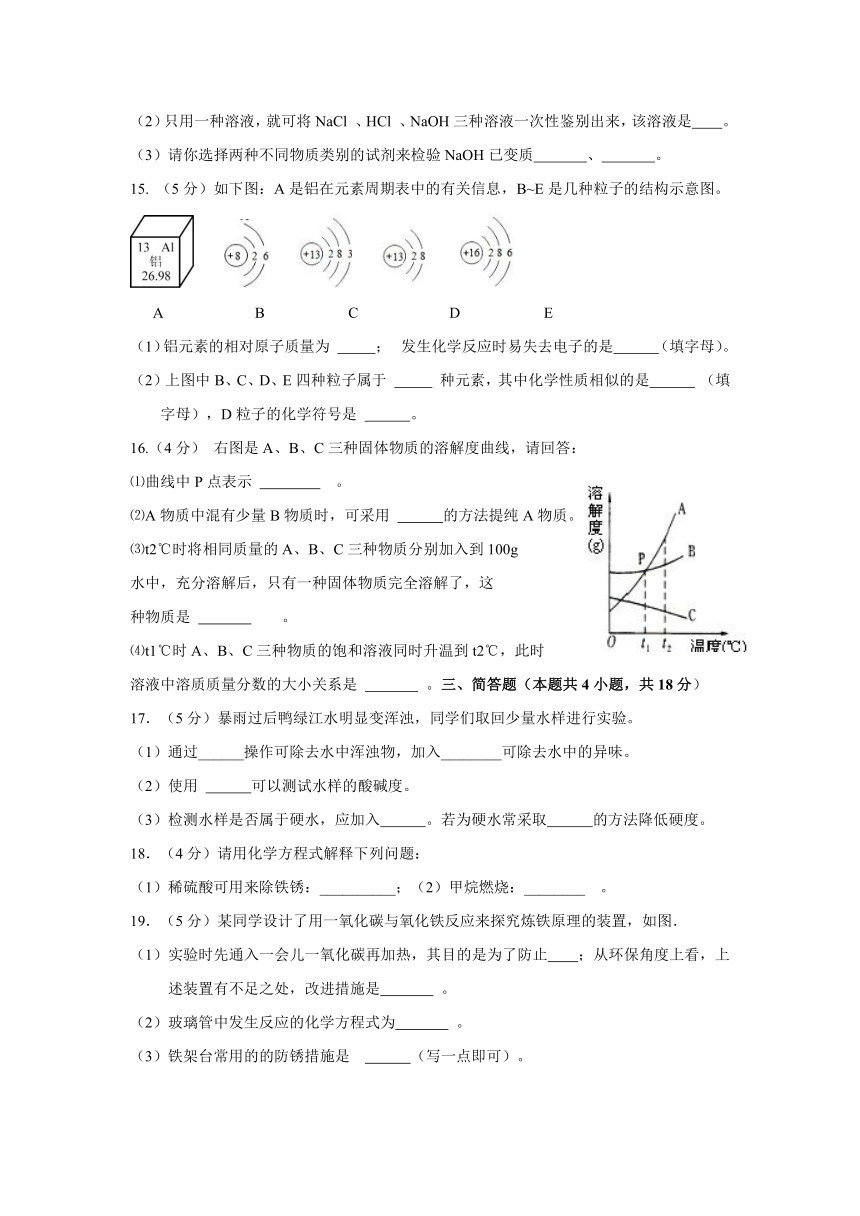 （2）只用一种溶液，就可将 NaCl 、HCl 、NaOH 三种溶液一次性鉴别出来，该溶液是____。
（3）请你选择两种不同物质类别的试剂来检验 NaOH 已变质_______、_______。
15. （5 分）如下图：A 是铝在元素周期表中的有关信息，B~E 是几种粒子的结构示意图。
13 Al
铝
26.98
+8 2 6
+13 2 8 3
+13 2 8
+16 2 8 6
A B C D E
（1）铝元素的相对原子质量为 _____； 发生化学反应时易失去电子的是______（填字母）。
（2）上图中 B、C、D、E 四种粒子属于 _____ 种元素，其中化学性质相似的是______ （填
字母），D 粒子的化学符号是 ______。
16.（4 分） 右图是 A、B、C 三种固体物质的溶解度曲线，请回答：
⑴曲线中 P 点表示 ________ 。
⑵A 物质中混有少量 B 物质时，可采用 ______的方法提纯 A 物质。
⑶t2℃时将相同质量的 A、B、C 三种物质分别加入到 100g
水中，充分溶解后，只有一种固体物质完全溶解了，这
种物质是 _______ 。
⑷t1℃时 A、B、C 三种物质的饱和溶液同时升温到 t2℃，此时
溶液中溶质质量分数的大小关系是 _______ 。三、简答题（本题共 4 小题，共 18 分）
溶解度(g)
A
P
B
C
O t1 t2 温度(℃)
17．（5 分）暴雨过后鸭绿江水明显变浑浊，同学们取回少量水样进行实验。
（1）通过______操作可除去水中浑浊物，加入________可除去水中的异味。
（2）使用 ______可以测试水样的酸碱度。
（3）检测水样是否属于硬水，应加入______。若为硬水常采取______的方法降低硬度。
18．（4 分）请用化学方程式解释下列问题：
（1）稀硫酸可用来除铁锈：__________；（2）甲烷燃烧：________ 。
19．（5 分）某同学设计了用一氧化碳与氧化铁反应来探究炼铁原理的装置，如图．
（1）实验时先通入一会儿一氧化碳再加热，其目的是为了防止____；从环保角度上看，上
述装置有不足之处，改进措施是_______ 。
（2）玻璃管中发生反应的化学方程式为_______ 。
（3）铁架台常用的的防锈措施是 ______（写一点即可）。